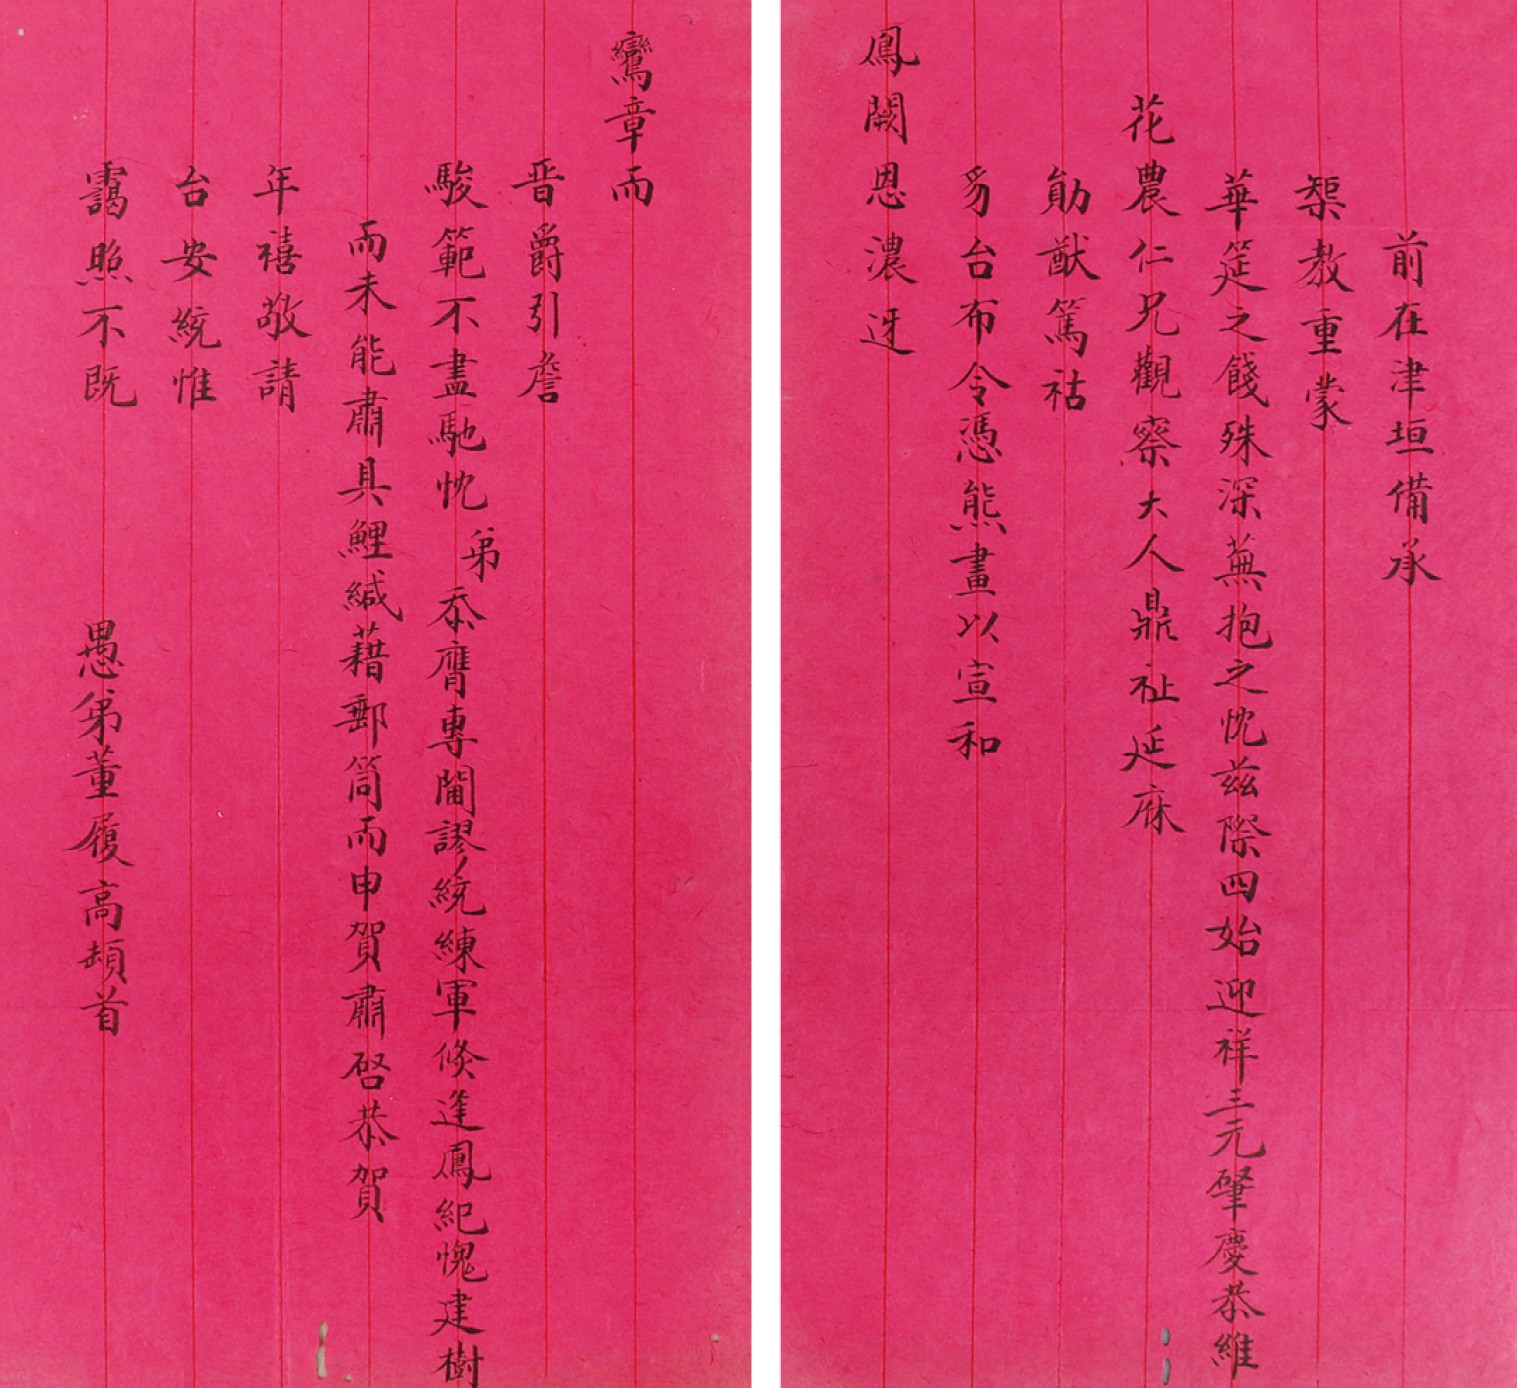 前在津垣備承
榘教重蒙
華筵之餞殊深蕪抱之忱兹際四始迎祥三元肇慶恭維
花農仁兄觀察大人鼎祉延庥
勛猷篤祜
豸台布令憑熊畫以宣和
鳳闕恩濃迓
鸞章而
晋爵引詹
駿範不盡馳忱弟忝膺專閫謬統練軍倏逢鳳紀愧建樹
而未能肅具鯉緘藉郵筒而申賀肅啓恭賀
年禧敬請
台安統惟
靄照不既
愚弟董履高頓首